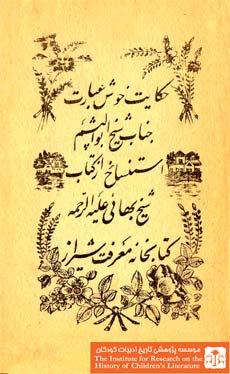 حکایت خوش عبارت
جناب شیخ ابوالپشم
استنساخ از کتاب
شیخ بهائی علیه الرحمه
کتابخانه معرفت شیراز
موسسه پژوهشی تاریخ ادبیات کودکان
The Institute for Research on the
History of Children's Literature